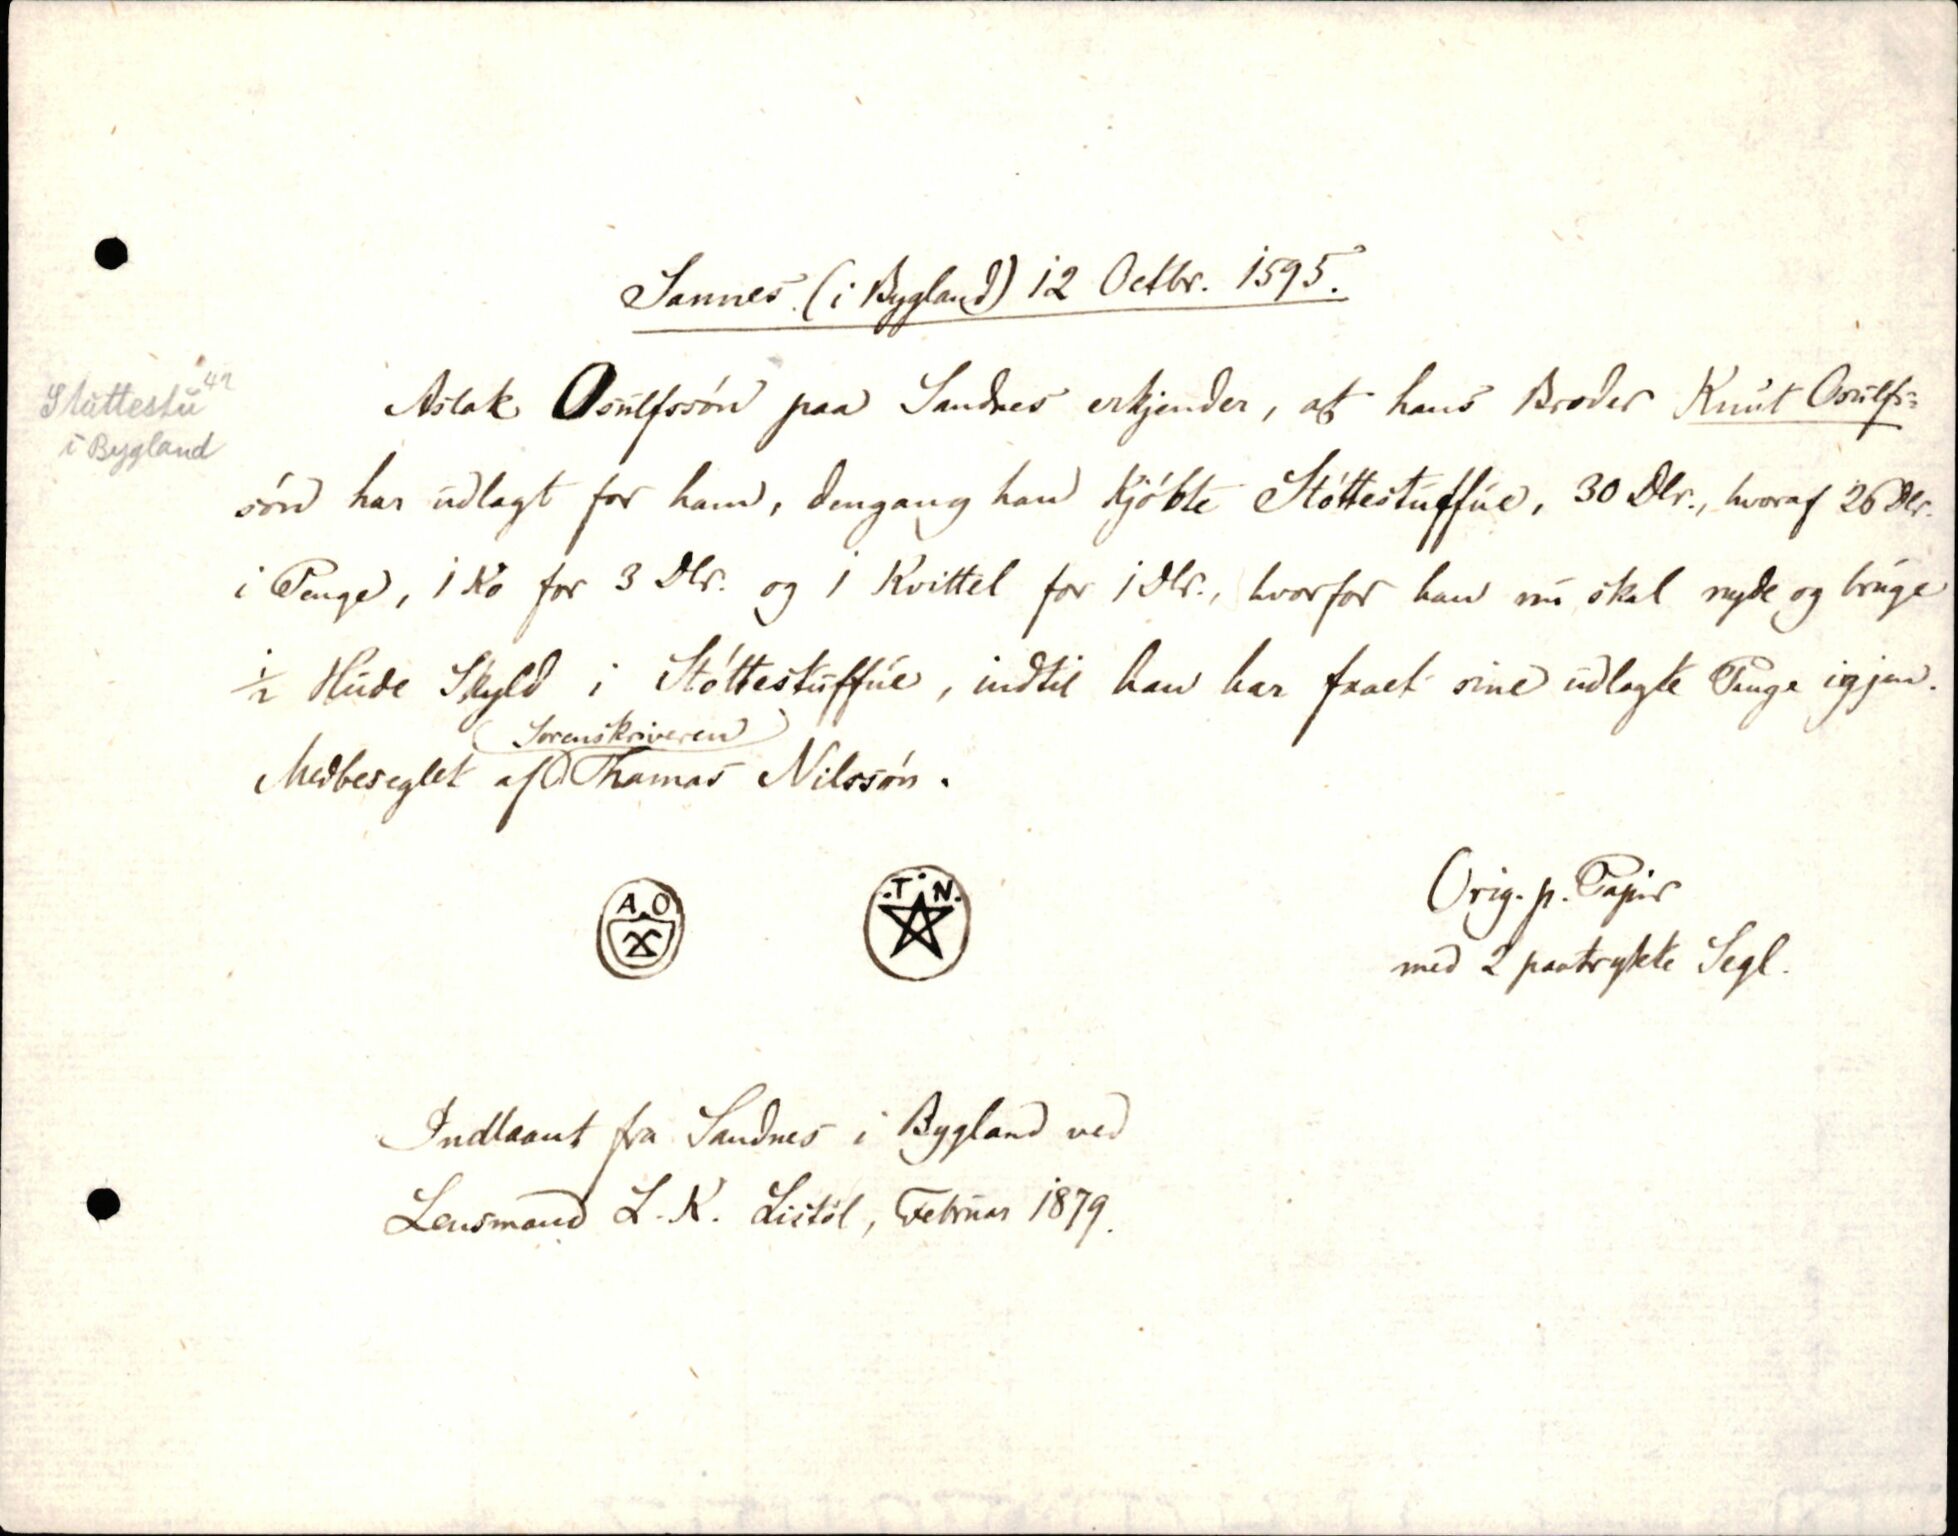 Sannes (i Bygland) 12 Octbr. 1595.
Stuttestu 42
i Bygland
Aslak Osulfssón paa Sandnes erkjender, at hans Broder Knut Osulfs-
són har udlagt for ham, dengang han kjóbte Stóttestuffue, 30 Dlr., hvoraf 26 Dlr.
i Penge, 1 Ko for 3 Dlr. og 1 Kvittel for 1 Dlr., hvorfor han nu skal nyde og bruge
1/2 Hude Skyld i Stóttestuffue, indtil han har faaet sine udlagte Penge igjen.
(Sorenskriveren)
Medbeseglet af Thamas Nilssón.
A. O
.T. N.
Orig. p. Papir
med 2 paatrykte Segl.
Indlaant fra Sandnes i Bygland ved
Lensmand L. K. Listól, Februar 1879.